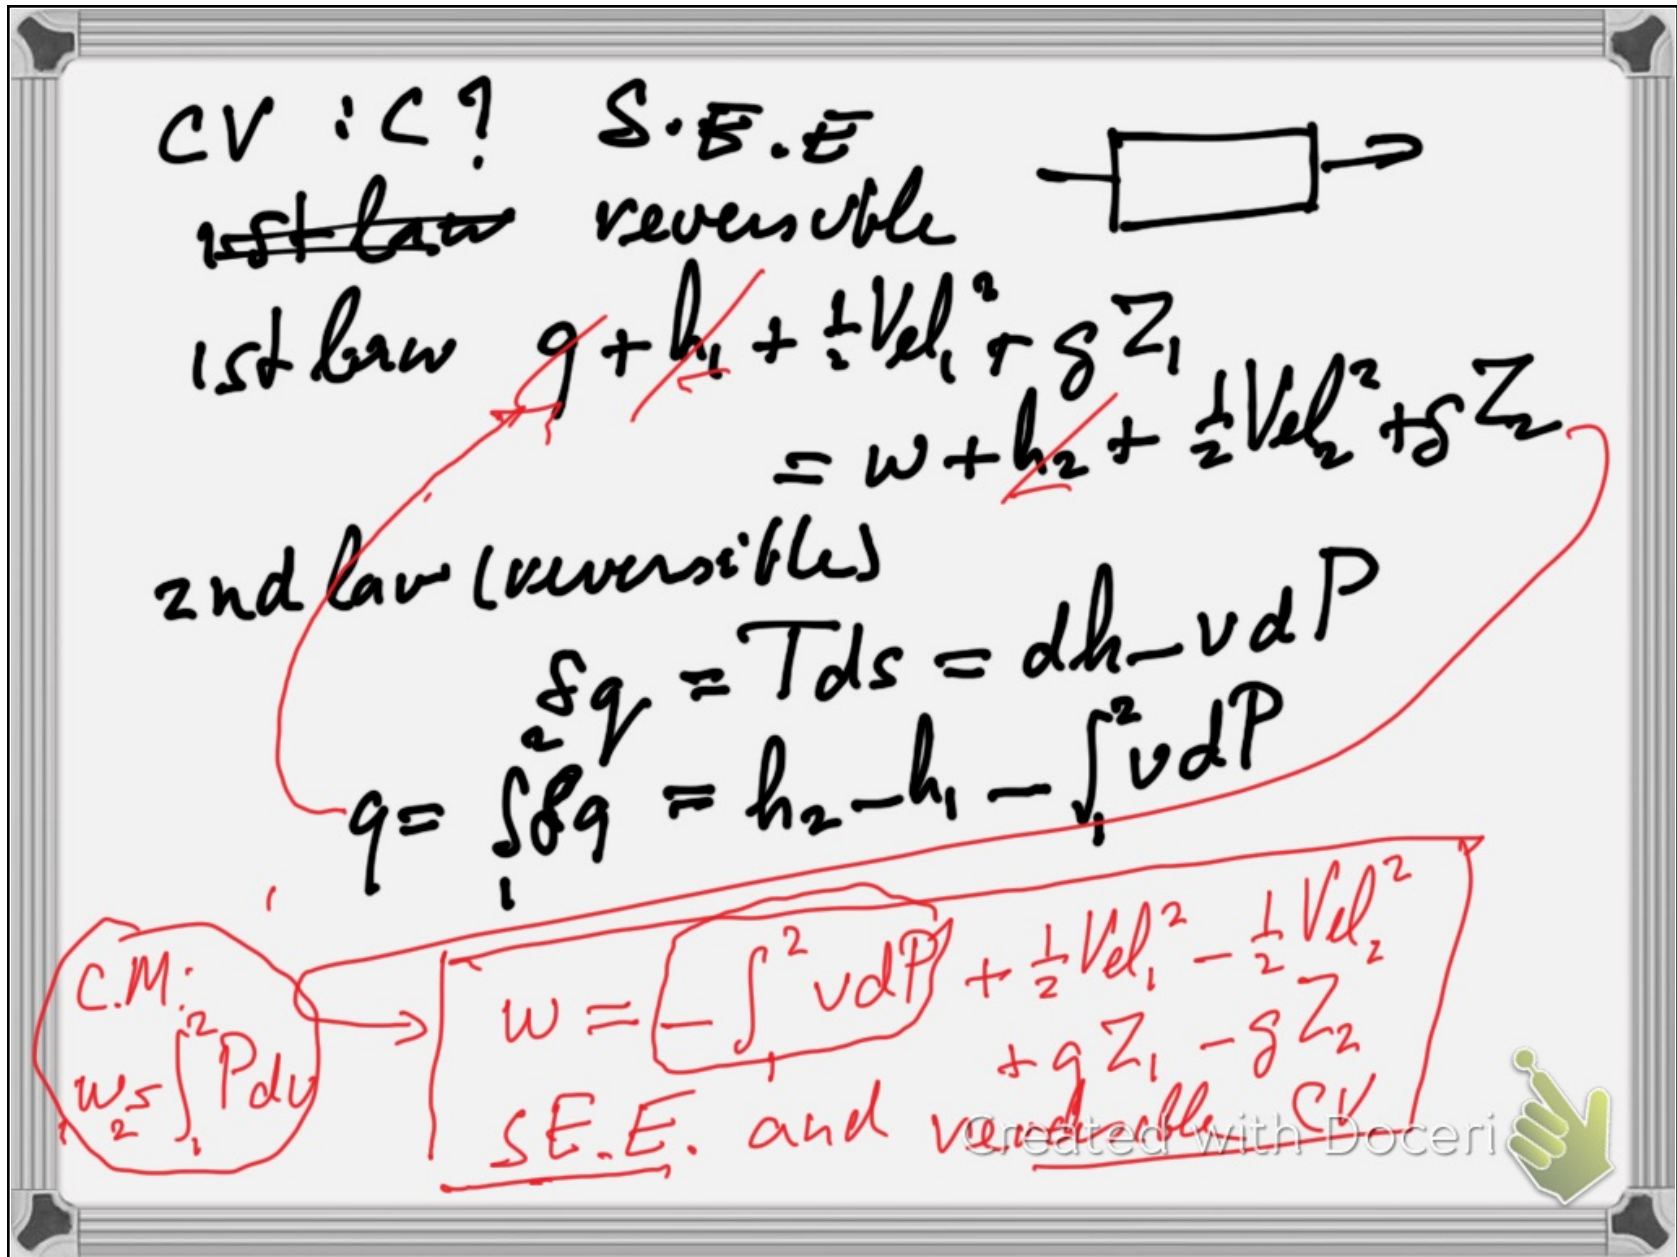 CV : C? S.E.E
1st law reversible
1st law q + h₁ + ½Vel₁² + gZ₁
= w + h₂ + ½Vel₂² + gZ₂
2nd law (reversible)
δq = Tds = dh - vdP
q = ∫₁² δq = h₂ - h₁ - ∫₁² vdP
C.M:
₁w₂ = ∫₁² Pdv
w = - ∫₁² vdP + ½Vel₁² - ½Vel₂²
+ gZ₁ - gZ₂
SE.E. and reversible CV
Created with Doceri